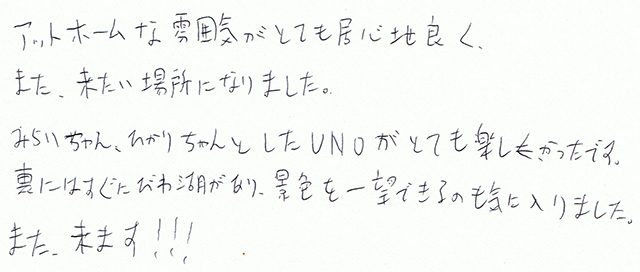 アットホームな雰囲気がとても居心地良く、
また、来たい場所になりました。
みらいちゃん、ひかりちゃんとしたUNOがとても楽しかったです。
裏にはすぐにびわ湖があり、景色を一望できるのも気に入りました。
また、来ます!!!